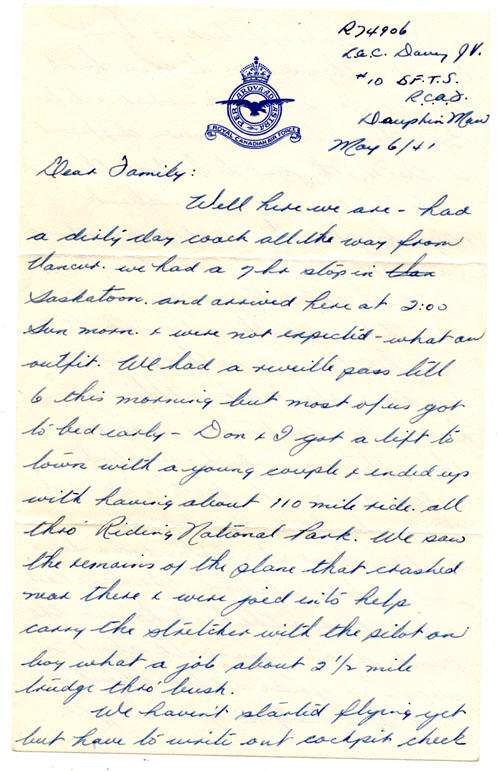 R74906
L.A.C. Davey J.V.
#10 S.F.T.S.
R.C.A.F.
Dauphin Man
May 6/41
PER ARDUA AD ASTRA
ROYAL CANADIAN AIR FORCE
Dear Family:
Well here we are - had
a dirty day coach all the way from
Vancvr. we had a 7 hr stop in
Saskatoon. and arrived here at 2:00
Sun morn. & were not expected - what an
outfit. We had a reveille pass till
6 this morning but most of us got
to bed early - Don & I got a lift to
town with a young couple & ended up
with having about 110 mile ride. all
thro' Riding National Park. We saw
the remains of the plane that crashed
near there & were into help
carry the stretcher with the pilot on
boy what a job about 2 1/2 mile
trudge thro' bush.
We haven't started flying yet
but have to write out cockpit check